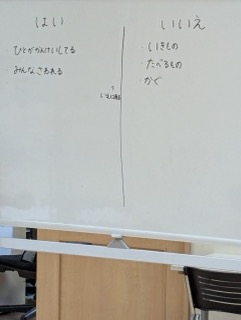 はい
ひとがかんけいしてる
みんなさわれる
?
いいえ
いきもの
たべるもの
かぐ